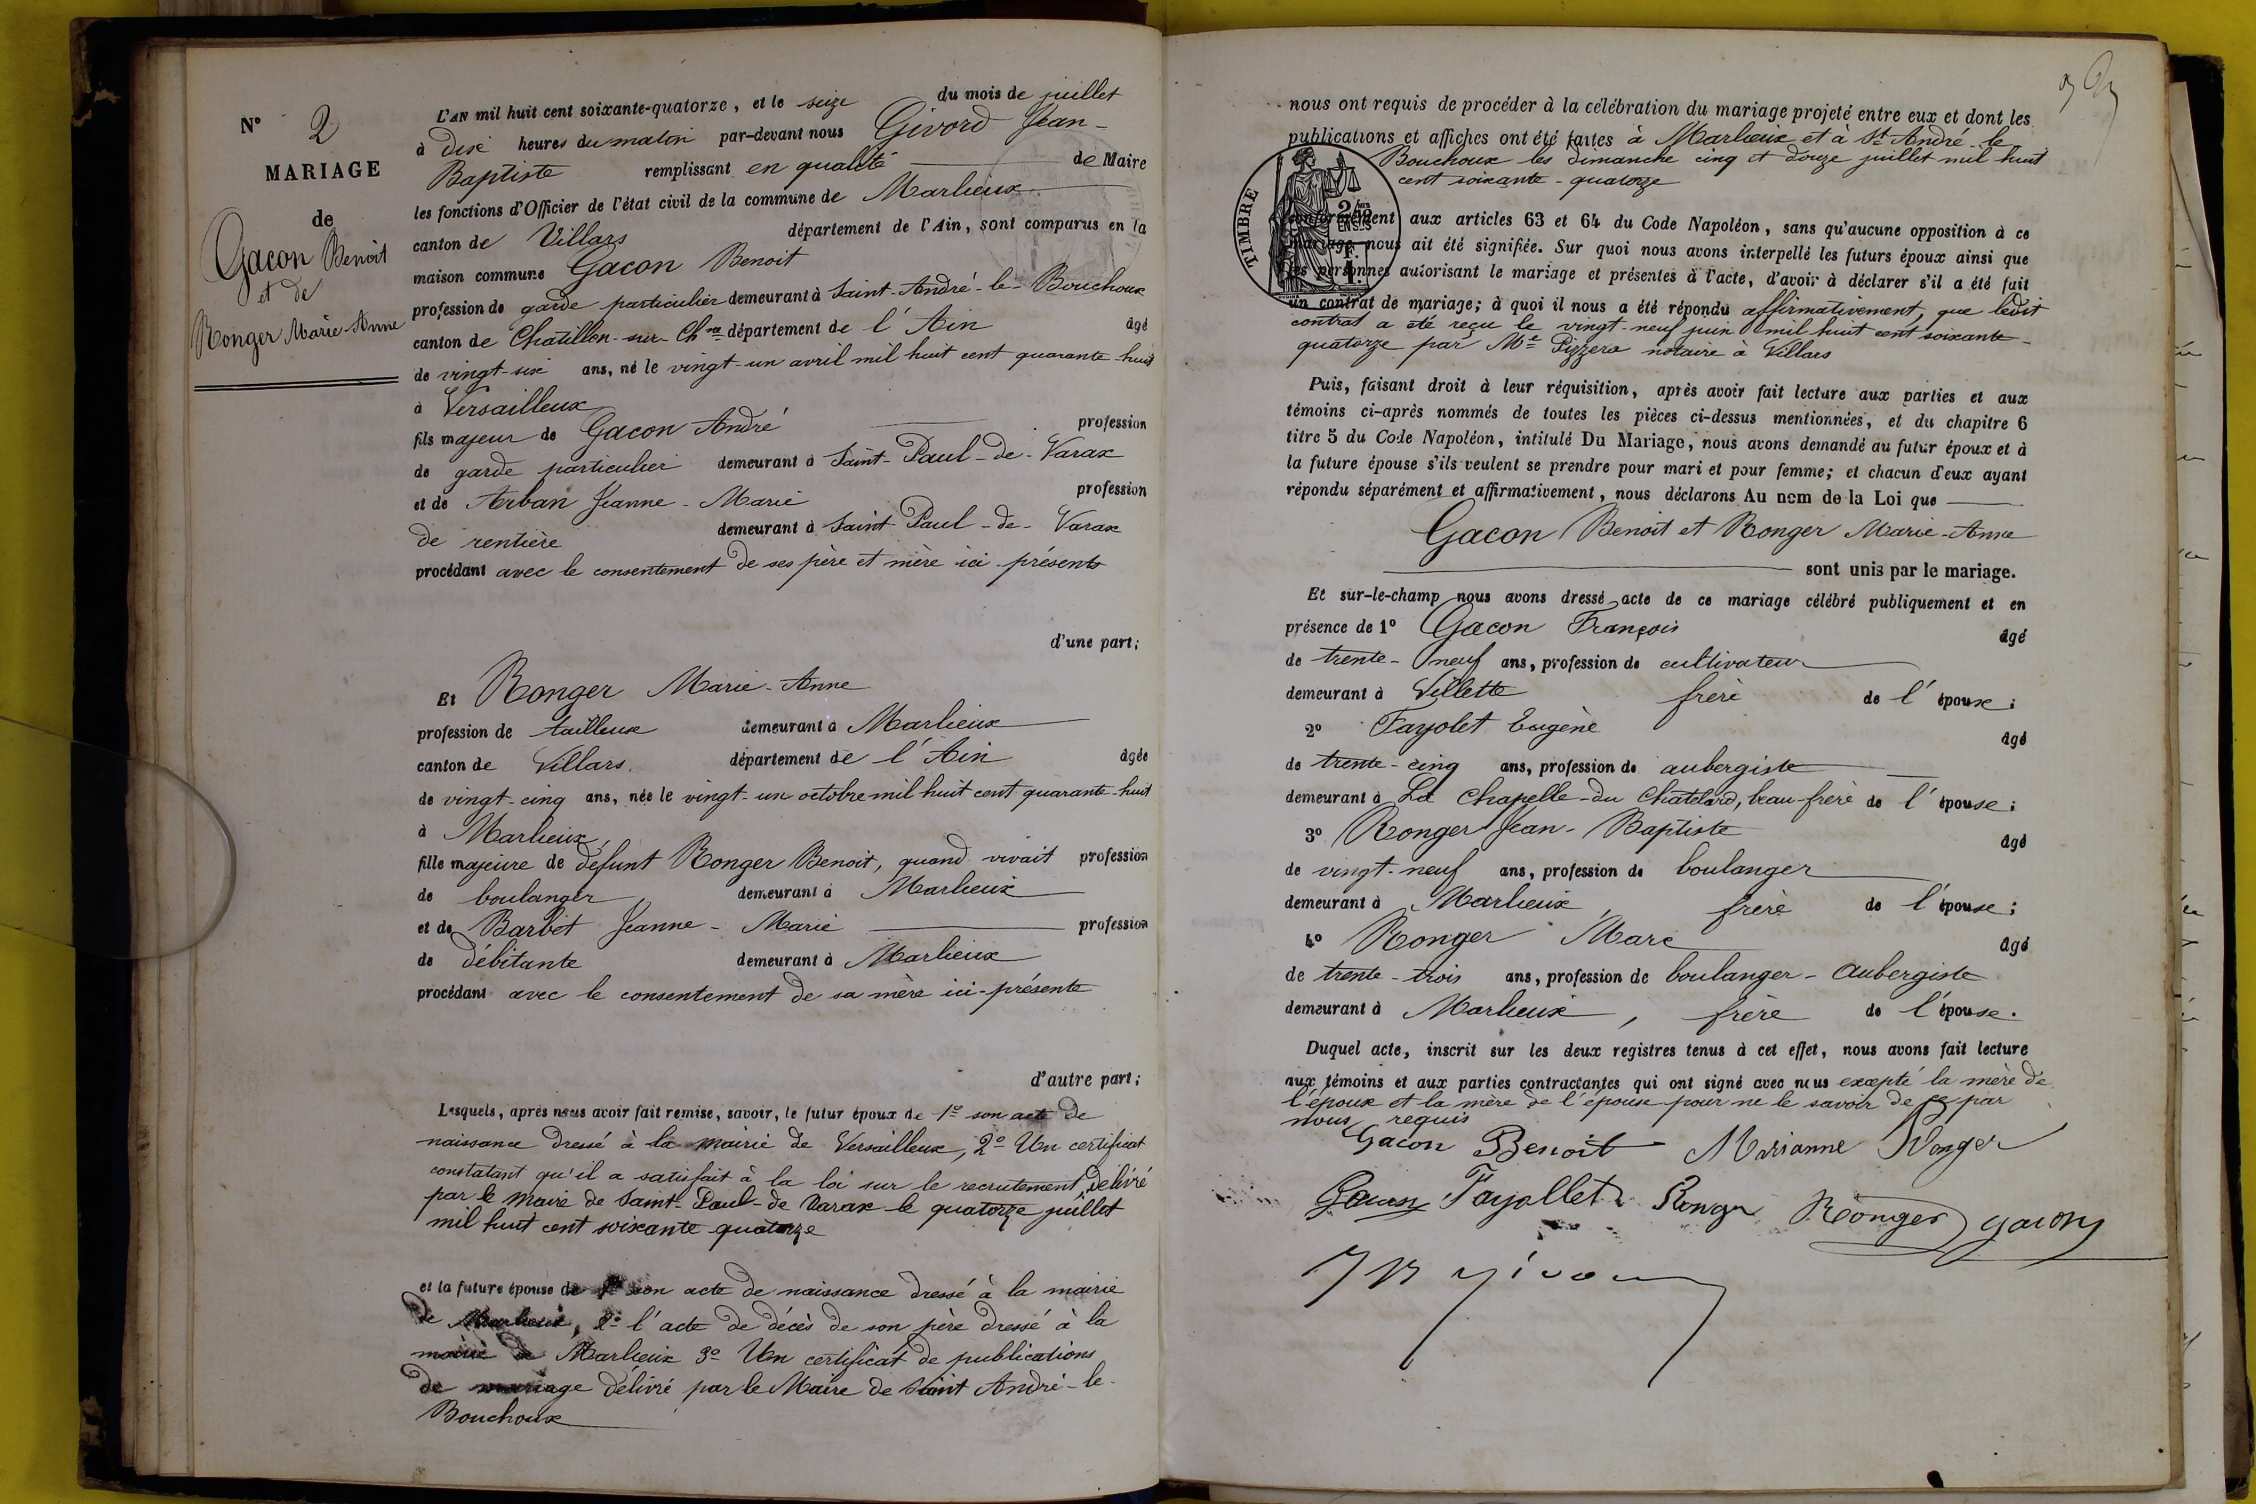 N° 2
MARIAGE
de
Gacon Benoit
et de
Ronger Marie-Anne
L'AN mil huit cent soixante-quatorze, et le seize du mois de juillet
à dix heures du matin par-devant nous Givord Jean-
Baptiste remplissant en qualité de Maire
les fonctions d'Officier de l'état civil de la commune de Marlieux
canton de Villars département de l'Ain, sont comparus en la
maison commune Gacon Benoit
profession de garde particulier demeurant à Saint-André-le-Bouchoux
canton de Chatillon-sur-Chne département de l'Ain âgé
de vingt-six ans, né le vingt-un avril mil huit cent quarante-huit
à Versailleux
fils majeur de Gacon André profession
de garde particulier demeurant à Saint-Paul-de-Varax
et de Arban Jeanne-Marie profession
de rentière demeurant à Saint Paul-de-Varax
procédant avec le consentement de ses père et mère ici présents
d'une part;
Et Ronger Marie-Anne
profession de tailleuse demeurant à Marlieux
canton de Villars. département de l'Ain âgée
de vingt-cinq ans, née le vingt-un octobre mil huit cent quarante-huit
à Marlieux
fille majeure de défunt Ronger Benoit, quand vivait profession
de boulanger demeurant à Marlieux
et de Barbet Jeanne-Marie profession
de débitante demeurant à Marlieux
procédant avec le consentement de sa mère ici-présente
d'autre part;
Lesquels, après nous avoir fait remise, savoir, le futur époux de 1° son acte de
naissance dressé à la mairie de Versailleux, 2° Un certificat
constatant qu'il a satisfait à la loi sur le recrutement, délivré
par le Maire de Saint-Paul-de Varax le quatorze juillet
mil huit cent soixante quatorze
et la future épouse de 1° son acte de naissance dressé à la mairie
de Marlieux, 2° l'acte de décès de son père dressé à la
mairie de Marlieux 3° Un certificat de publications
de mariage délivré par le Maire de Saint André-le-
Bouchoux
nous ont requis de procéder à la célébration du mariage projeté entre eux et dont les
publications et affiches ont été faites à Marlieux et à St André-le
Bouchoux les dimanche cinq et douze juillet mil huit
cent soixante-quatorze
TIMBRE
conformément aux articles 63 et 64 du Code Napoléon, sans qu'aucune opposition à ce
mariage nous ait été signifiée. Sur quoi nous avons interpellé les futurs époux ainsi que
les personnes autorisant le mariage et présentes à l'acte, d'avoir à déclarer s'il a été fait
un contrat de mariage; à quoi il nous a été répondu affirmativement, que ledit
contrat a été reçu le vingt-neuf juin mil huit cent soixante-
quatorze par Me Pizzera notaire à Villars
Puis, faisant droit à leur réquisition, après avoir fait lecture aux parties et aux
témoins ci-après nommés de toutes les pièces ci-dessus mentionnées, et du chapitre 6
titre 5 du Code Napoléon, intitulé Du Mariage, nous avons demandé au futur époux et à
la future épouse s'ils veulent se prendre pour mari et pour femme; et chacun d'eux ayant
répondu séparément et affirmativement, nous déclarons Au nom de la Loi que
Gacon Benoit et Ronger Marie-Anne
sont unis par le mariage.
Et sur-le-champ nous avons dressé acte de ce mariage célébré publiquement et en
présence de 1° Gacon François âgé
de trente-neuf ans, profession de cultivateur
demeurant à Villette frère de l'époux;
2° Fayolet Eugène âgé
de trente-cinq ans, profession de aubergiste
demeurant à La Chapelle-du Chatelard, beau-frère de l'épouse;
3° Ronger Jean-Baptiste âgé
de vingt-neuf ans, profession de boulanger
demeurant à Marlieux, frère de l'épouse;
4° Ronger Marc âgé
de trente-trois ans, profession de boulanger-aubergiste
demeurant à Marlieux, frère de l'épouse.
Duquel acte, inscrit sur les deux registres tenus à cet effet, nous avons fait lecture
aux témoins et aux parties contractantes qui ont signé avec nous excepté la mère de
l'époux et la mère de l'épouse pour ne le savoir de ce par
nous requis
Gacon Benoit Marianne Ronger
Gacon Fayollet Ronger Ronger gacon
JB Givord